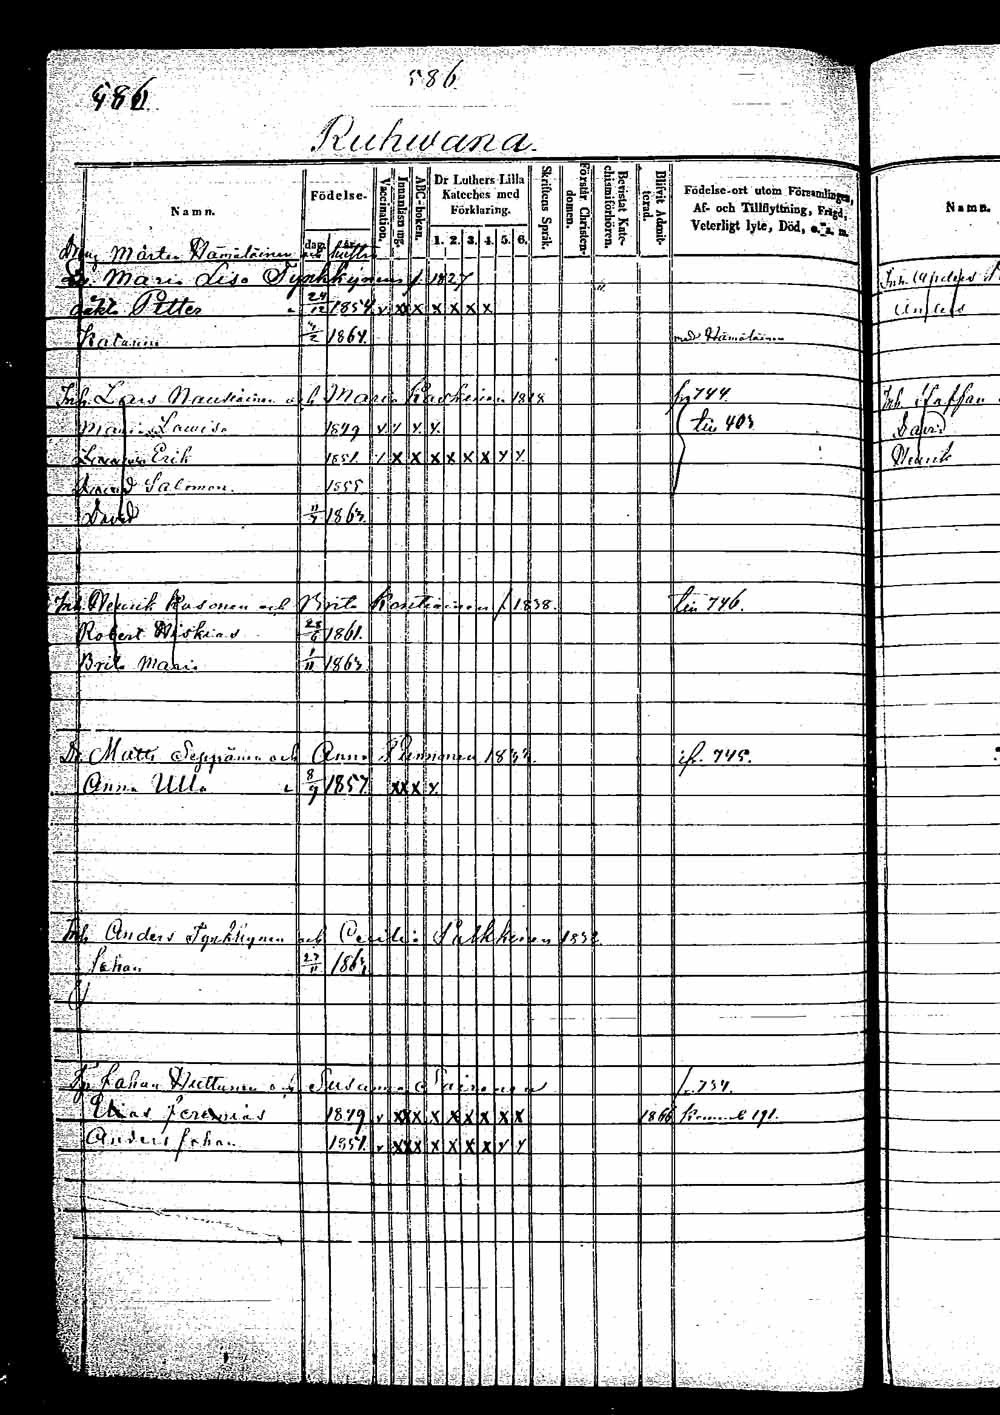 586.
586.
Ruhwana.
Namn.
Födelse-
dag. år.
Vaccination.
Innanläsning.
ABC-boken.
Dr Luthers Lilla Kateches med Förklaring.
1. 2. 3. 4. 5. 6.
Skriftens Språk.
Förstår Christendomen.
Bevistat Katechismiförhören.
Blifvit Admitterad.
Födelse-ort utom Församlingen, Af- och Tillflyttning, Frägd, Veterligt lyte, Död, o. s. m.
Namn.
Mårten Hämäläinen och hustru
Maria Lisa Tyrkkynen f. 1827
Petter 24/12 1854. v xx x x x x x
Katarina 4/2 1864. med Hämäläinen
Inh. Lars Nousiainen och Maria Kaskinen 1828 fr 744.
Maria Lowisa 1849 v v v. v. till 403
Erik 1851. v x x x x x x v v.
Salomon. 1855
David 11/3 1863.
Inh. Henrik Kosonen och Brita Kontiainen f. 1838. till 746.
Robert Hiskias 28/6 1861.
Brita Maria 1/11 1863.
Dr. Matts Seppänen och Anna Piennonen 1833. ifr. 745.
Anna Ulla 8/9 1857. xx x v.
Inh. Anders Tyrkkynen och Cecilia Pulkkinen 1832.
Johan 27/11 1863.
Johan Huttunen och Susanna Pairinen f. 734.
Elias Jeremias 1849 v xx x x x x x x x 1866 191.
Anders Johan 1851. v xx x x x x x v v
Inh. Staffan
Anders
David
Henrik